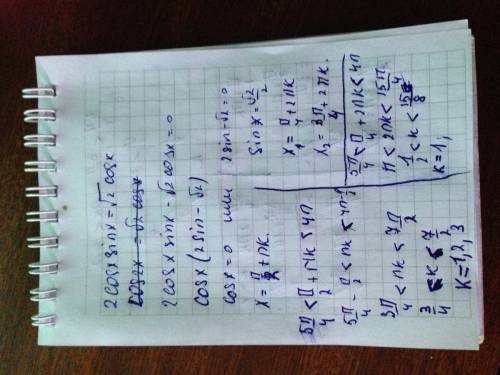 2cosx sinx = √2 cosx
2cosx sinx - √2 cosx = 0
cosx (2sin - √2)
cosx = 0 или 2sin - √2 = 0
x = π/2 + πk. sinx = √2/2
x₁ = π/4 + 2πk
x₂ = 3π/4 + 2πk.
5π/4 < π/2 + πk < 4π
5π/4 - π/2 < πk < 4π - π/2
3π/4 < πk < 7π/2
3/4 < k < 7/2
k = 1, 2, 3
5π/4 < π/4 + 2πk < 4π
π < 2πk < 15π/4
1/2 < k < 15/8
k = 1;